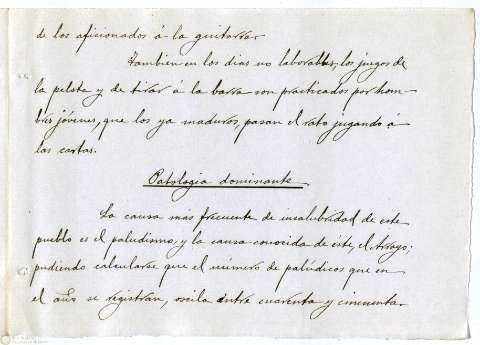 de los aficionados á la guitarra
Tambien en los dias no laborables, los juegos de
la pelota y de tirar á la barra son practicados por hom-
bres jóvenes, que los ya maduros, pasan el rato jugando á
las cartas.
Patologia dominante
La causa mas frecuente de insalubridad de este
pueblo es el paludismo, y la causa conocida de éste, el Arroyo;
pudiendo calcularse que el número de palúdicos que en
el año se registran, oscila entre cuarenta y cincuenta.